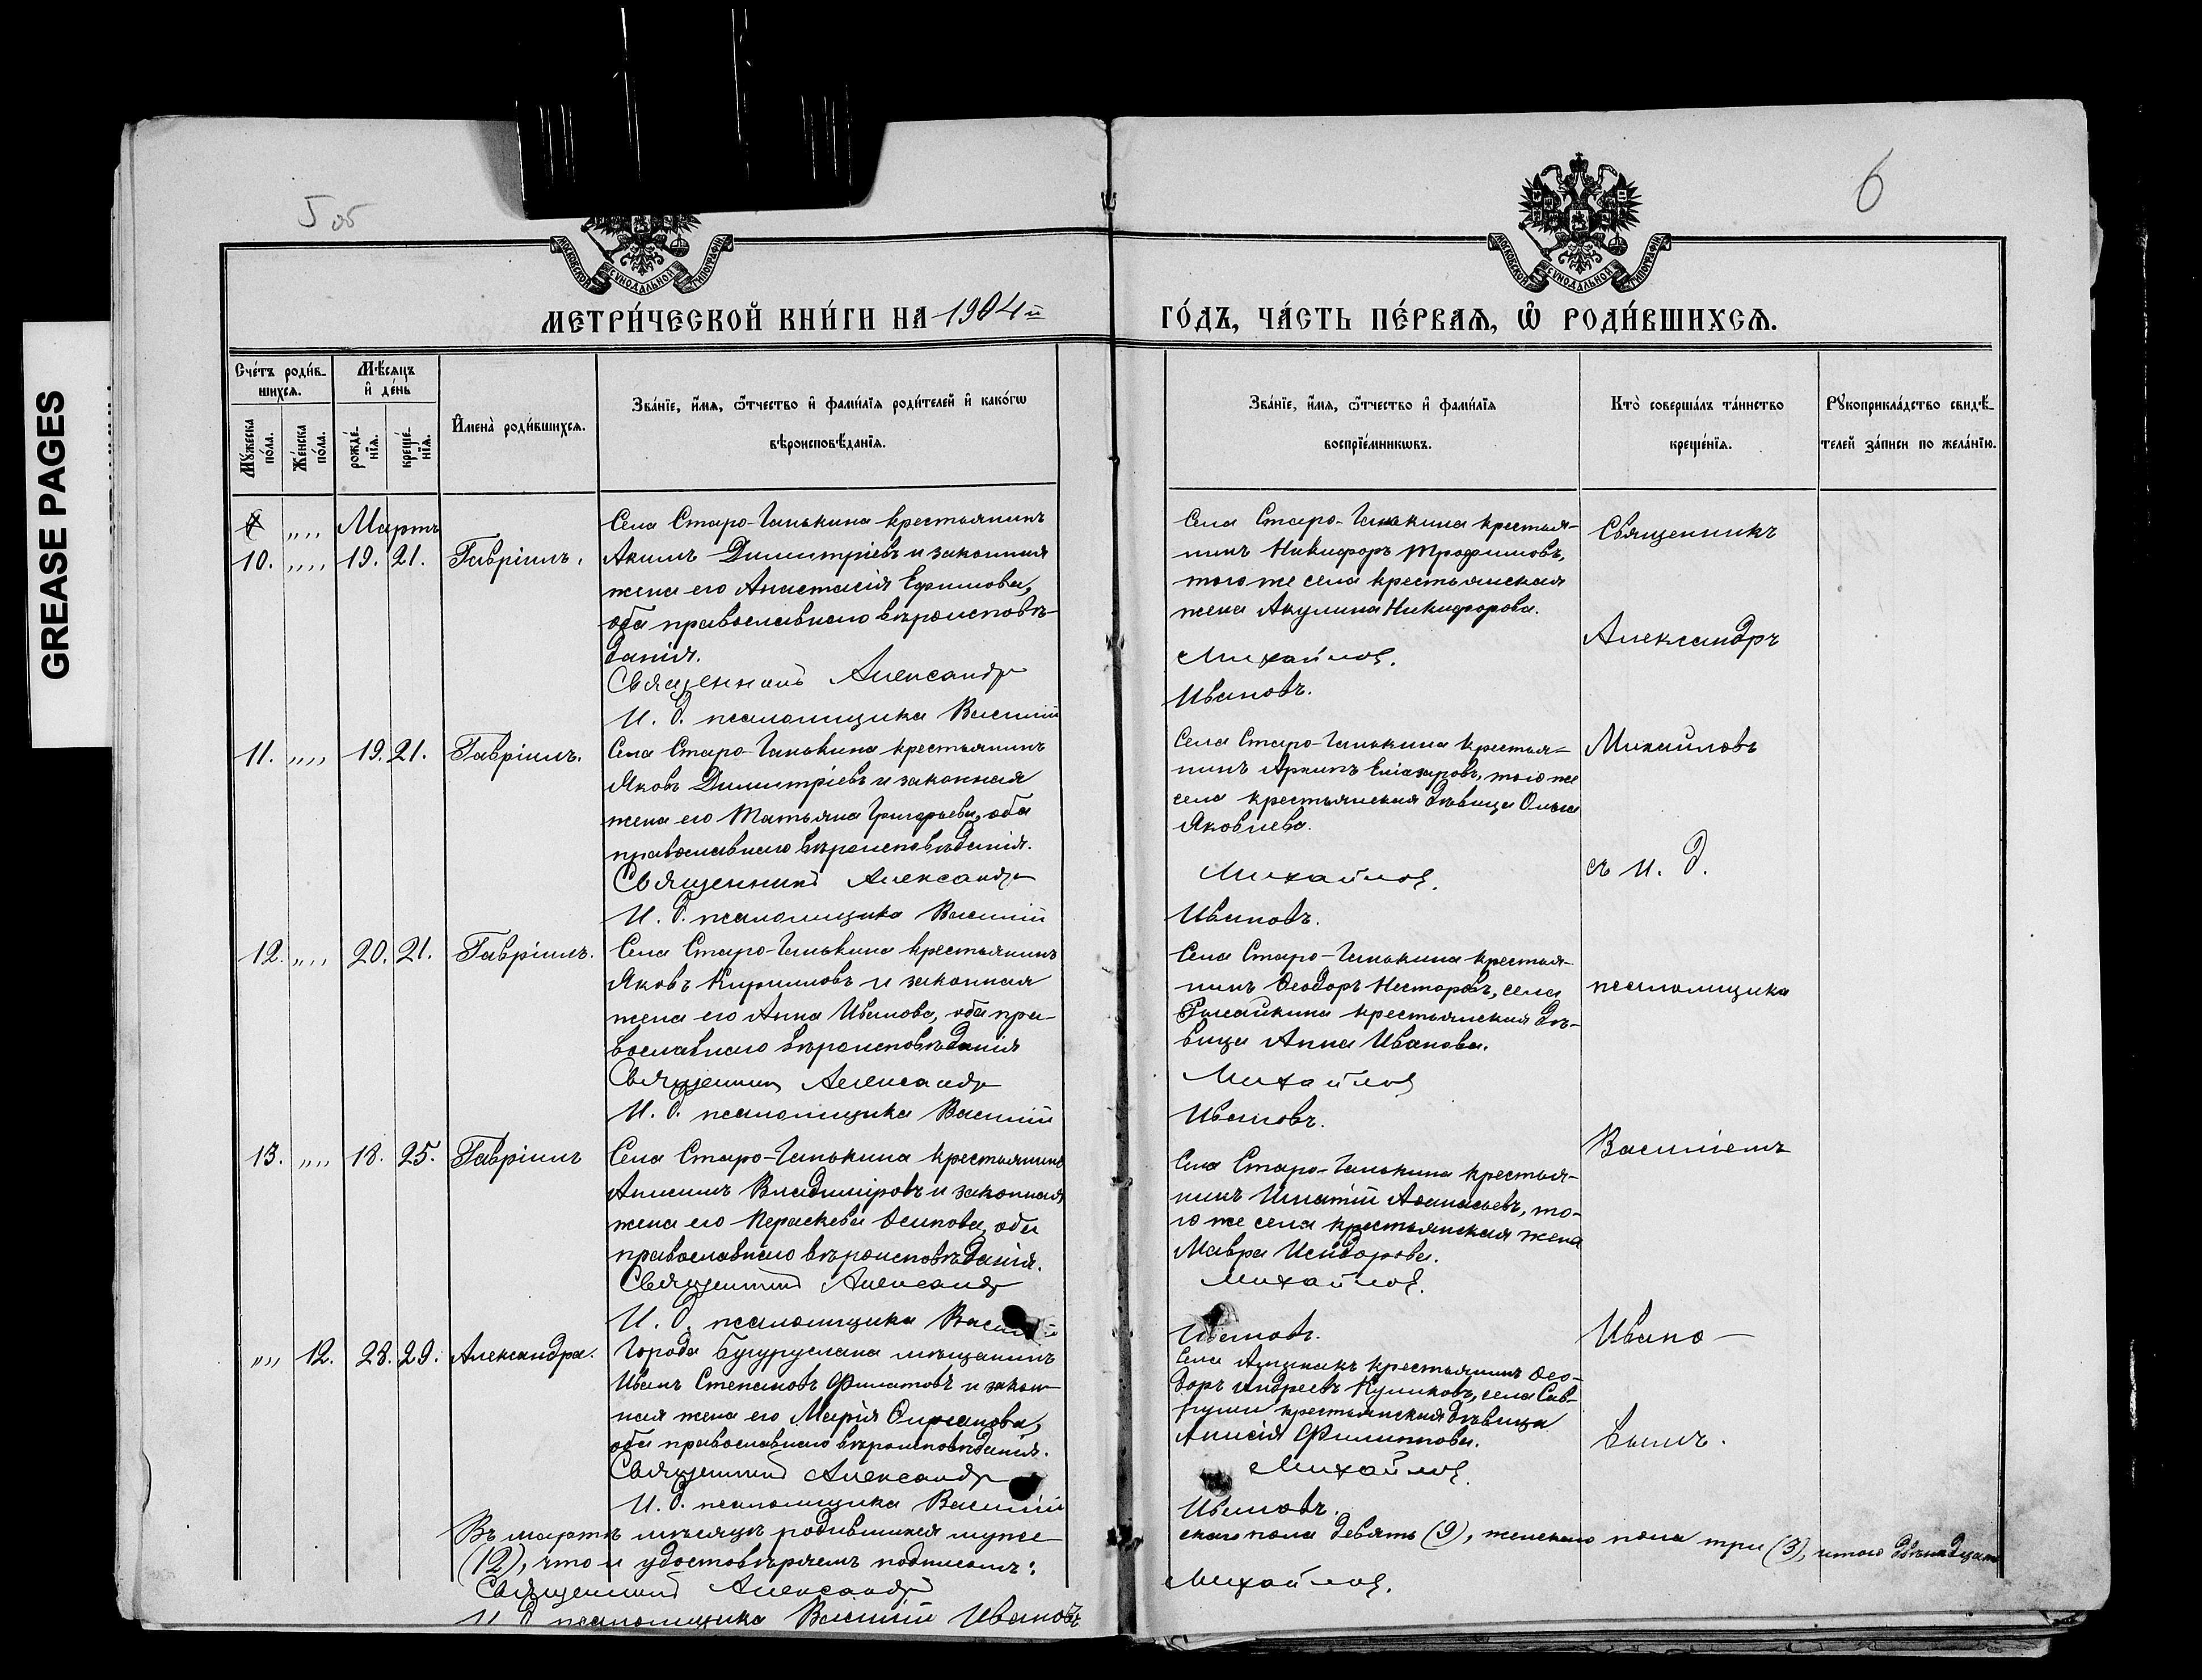 GREASE PAGES
5 об
6
МОСКОВСКОЙ СѴНОДАЛЬНОЙ ТИПОГРАФІИ
МОСКОВСКОЙ СѴНОДАЛЬНОЙ ТИПОГРАФІИ
МЕТРИ́ЧЕСКОЙ КНИ́ГИ НА 1904й
ГО́ДЪ, ЧА́СТЬ ПЕ́РВАѦ, Ѡ҆ РОДИ́ВШИХСѦ.
Счéтъ роди́в-
шихсѧ.
Мꙋ́жеска
по́ла.
Же́нска
по́ла.
Мѣ́сѧцъ
и҆ де́нь
рожде́-
нїѧ.
креще́-
нїѧ.
И҆мена̀ роди́вшихсѧ.
Зва́нїе, и҆́мѧ, ѻ҆́тчество и҆ фами́лїѧ роди́телей и҆ како́гѡ
вѣроисповѣ́данїѧ.
Зва́нїе, и҆́мѧ, ѻ҆́тчество и҆ фами́лїѧ
воспрїе́мникѡвъ.
Кто̀ соверша́лъ та́инство
креще́нїѧ.
Рꙋкоприкла́дство свидѣ́-
телей за́писи по жела́нїю.
"" Мартъ
10. "" 19. 21. Гавріилъ.
Села Старо-Ганькина крестьянинъ
Акимъ Димитріевъ и законная
жена его Анастасія Ефимова,
оба православнаго вѣроисповѣ-
данія.
Священникъ Александръ
И. д. псаломщика Василій
Села Старо-Ганькина крестья-
нинъ Никифоръ Трофимовъ,
того же села крестьянская
жена Акулина Никифорова.
Михайловъ.
Ивановъ.
Священникъ
Александръ
11. "" 19. 21. Гавріилъ.
Села Старо-Ганькина крестьянинъ
Яковъ Димитріевъ и законная
жена его Татьяна Григорьева, оба
православнаго вѣроисповѣданія.
Священникъ Александръ
И. д. псаломщика Василій
Села Старо-Ганькина крестья-
нинъ Архипъ Елиазаровъ, того же
села крестьянская дѣвица Ольга
Яковлева.
Михайловъ.
Ивановъ.
Михайловъ
съ и. д.
12. "" 20. 21. Гавріилъ.
Села Старо-Ганькина крестьянинъ
Яковъ Кирилловъ и законная
жена его Анна Иванова, оба пра-
вославнаго вѣроисповѣданія
Священникъ Александръ
И. д. псаломщика Василій
Села Старо-Ганькина крестья-
нинъ Ѳеодоръ Несторовъ, села
крестьянская дѣ-
вица Анна Иванова.
Михайловъ
Ивановъ.
псаломщика
13. "" 18. 25. Гавріилъ
Села Старо-Ганькина крестьянинъ
Анисимъ Владиміровъ и законная
жена его Параскева Осипова, оба
православнаго вѣроисповѣданія.
Священникъ Александръ
И. д. псаломщика Василій
Села Старо-Ганькина крестья-
нинъ Игнатій Аѳанасьевъ, то-
го же села крестьянская жена
Мавра Исидорова.
Михайловъ.
Ивановъ.
Василіемъ
Ивано-
"" 12. 28. 29. Александра.
Города Бугуруслана мѣщанинъ
Иванъ Степановъ Филатовъ и закон-
ная жена его Марія
оба православнаго вѣроисповѣданія.
Священникъ Александръ
И. д. псаломщика Василій
Села крестьянинъ Ѳео-
доръ Андреевъ Куликовъ, села Сав-
руши крестьянская дѣвица
Анисія Филиппова.
Михайловъ.
Ивановъ.
вымъ.
Въ мартѣ мѣсяцѣ родившихся муже-
скаго пола девять (9), женскаго пола три (3), итого двѣнадцать
(12), что и удостовѣряемъ подписомъ:
Священникъ Александръ
Михайловъ.
И д псаломщика Василій Ивановъ